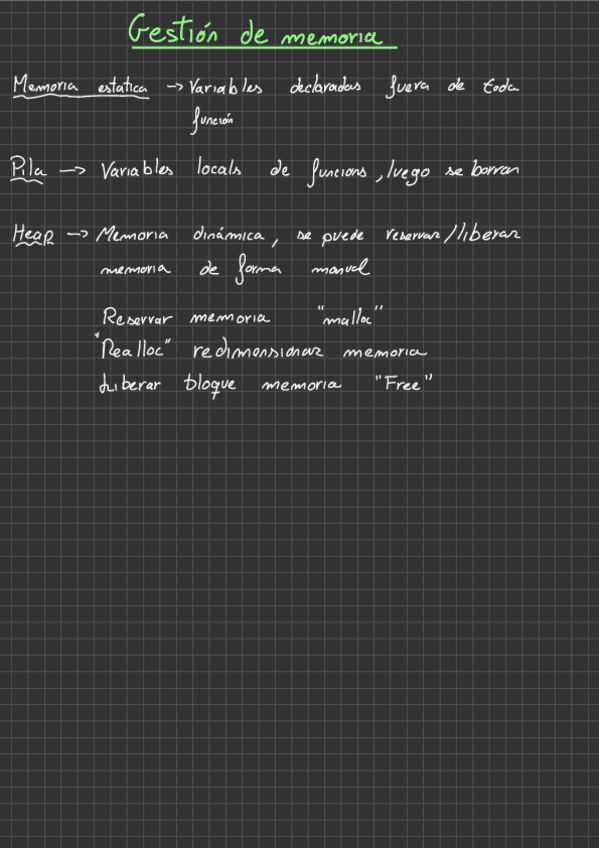 Gestión de memoria
Memoria estática -> Variables declaradas fuera de toda
función
Pila -> Variables locals de funcions, luego se borran
Heap -> Memoria dinámica, se puede reservar/liberar
memoria de forma manual
Reservar memoria "malloc"
"Realloc" redimensionar memoria
Liberar bloque memoria "Free"